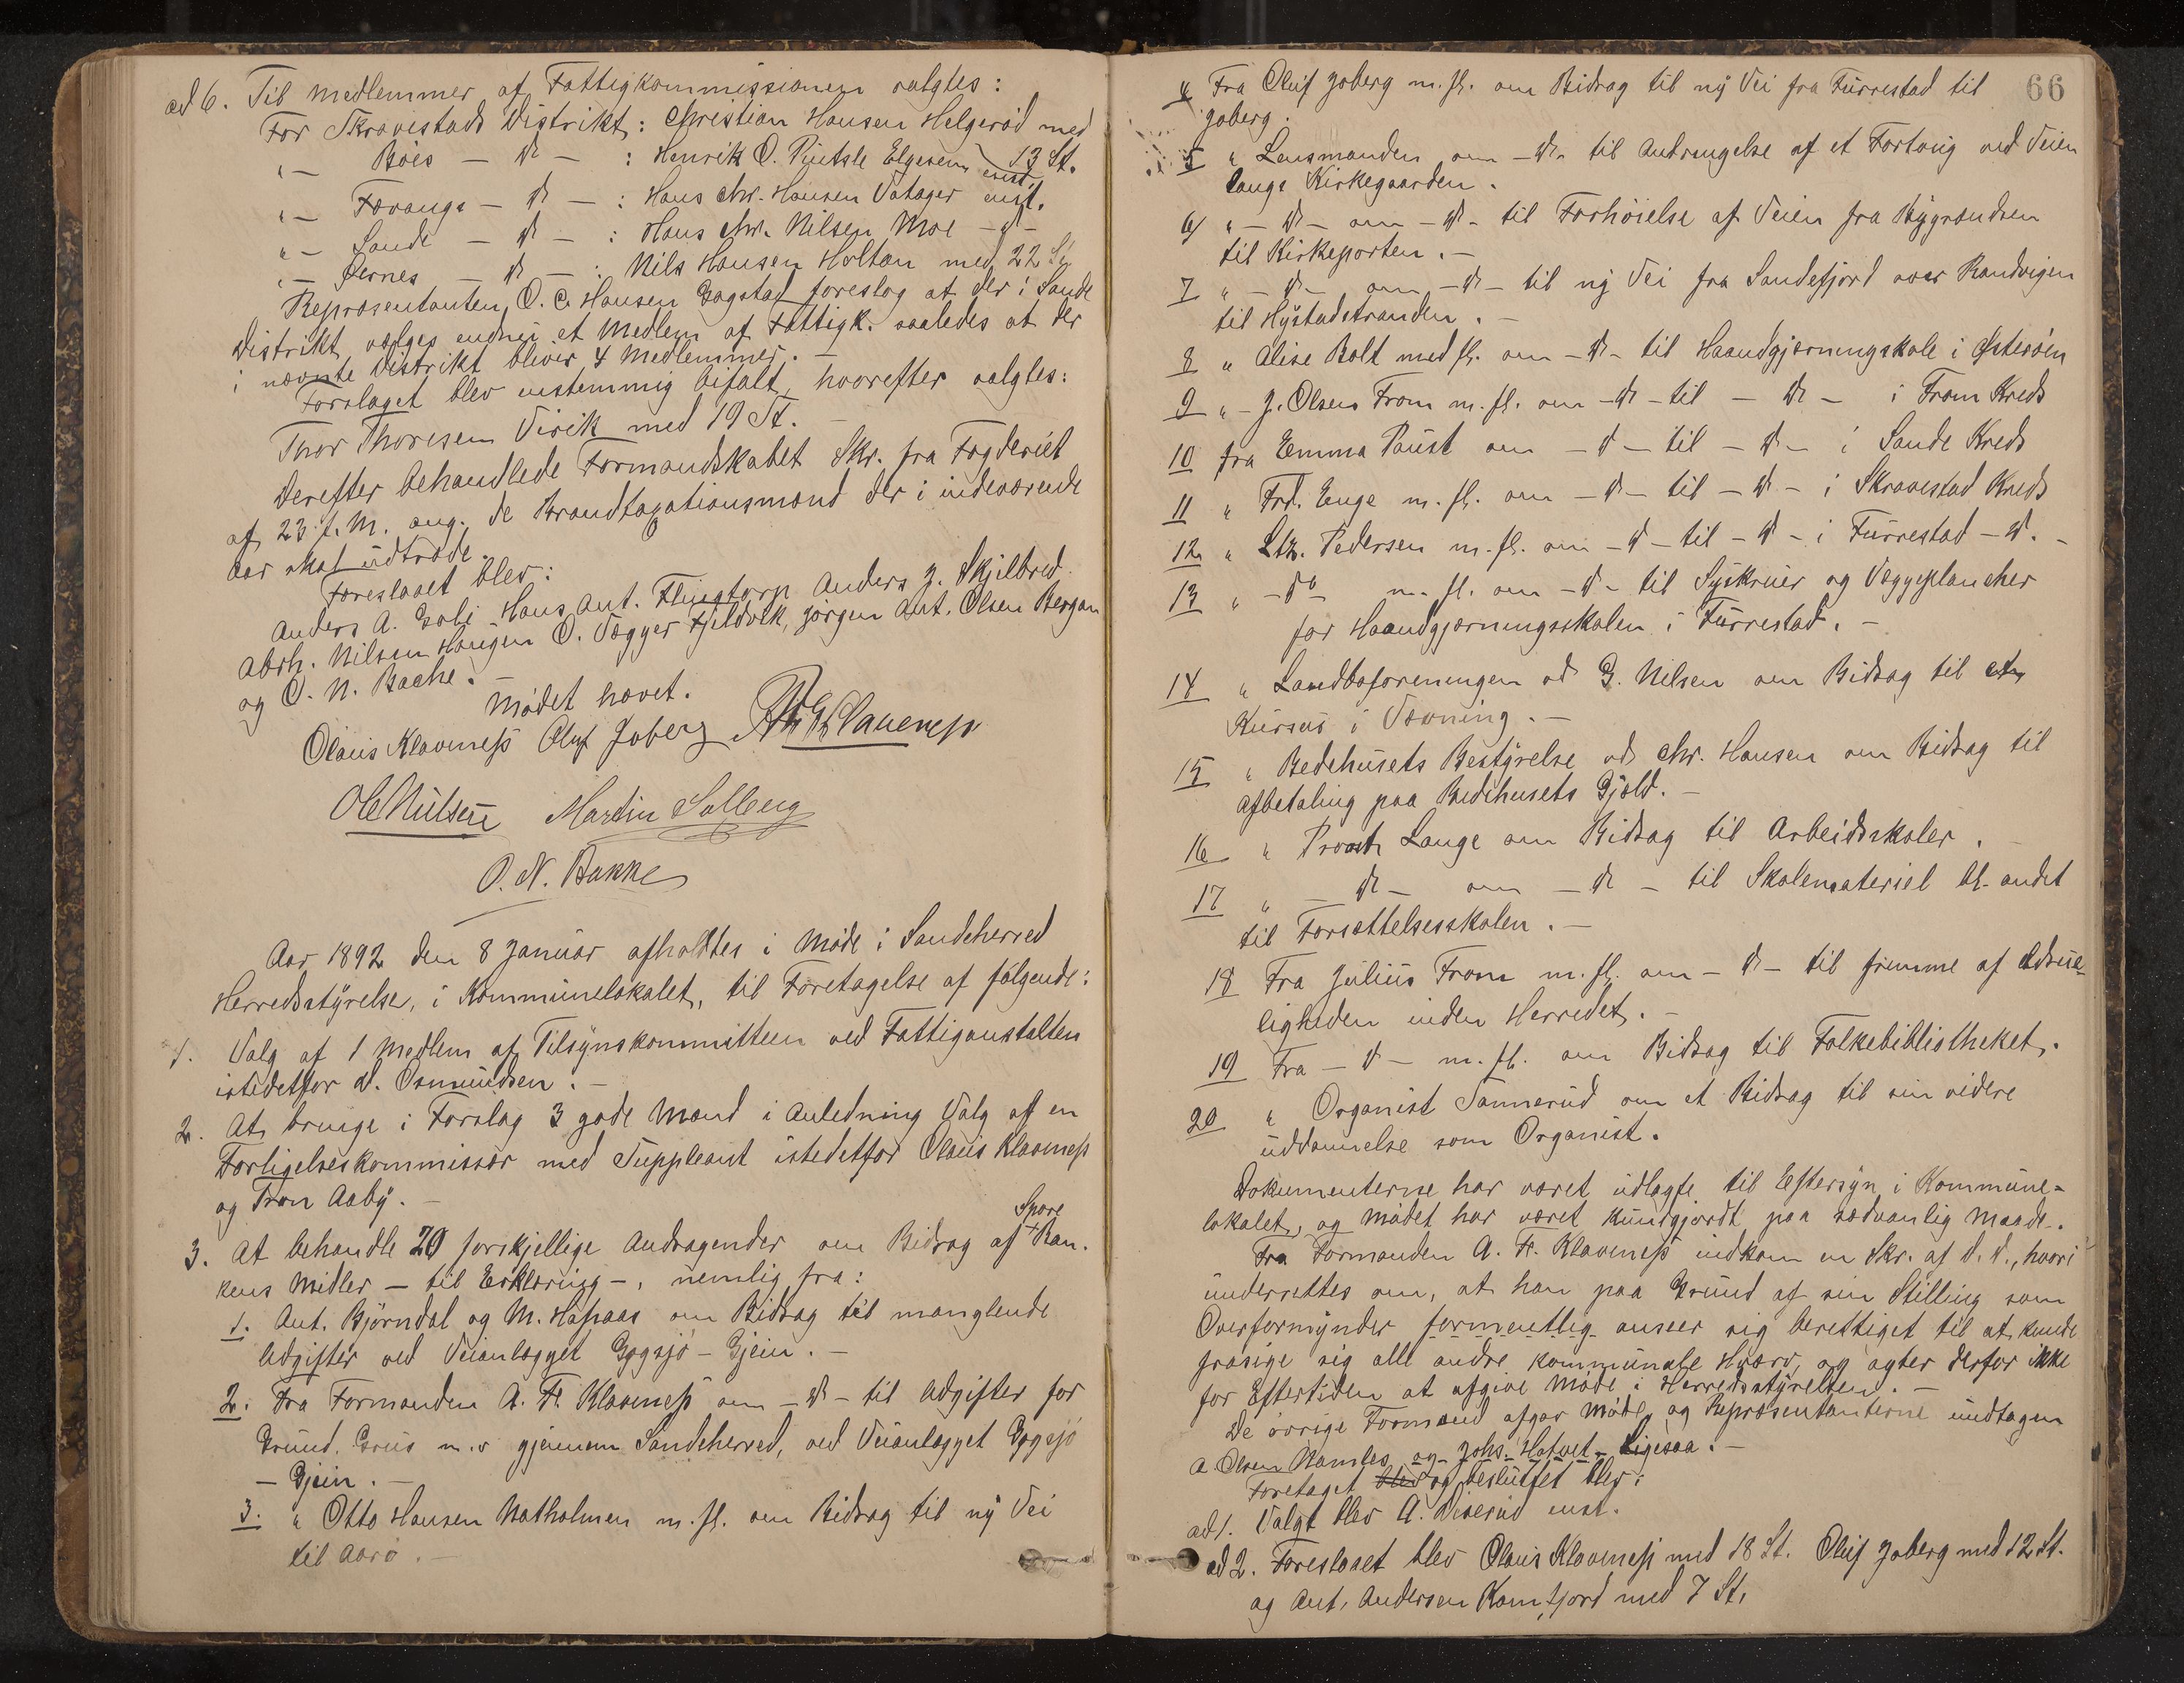 ad 6. Til Medlemmer af Fattigkommissionen valgtes:
For Skravestads Distrikt: Christian Hansen Helgerød med
13 St.
" — Bøes — d — : Henrik O. Pintsle Elgesem enst.
" — Fævangs — d — : Hans Chr. Hansen Vatager enst.
" — Sande — d — : Hans Chr. Nilsen Moe — d —
" — Fevnes — d — : Nils Hansen Holtan med 22 St.
Repræsentanten O. C. Hansen Gogstad foreslog at der i Sande
Distrikt vælges endnu et Medlem af Fattigk. saaledes at der
i nævnte Distrikt bliver 4 Medlemmer. —
Forslaget blev enstemmig bifalt, hvorefter valgtes:
Thor Thoresen Virik med 19 St. —
Derefter behandlede Formandskabet Skr. fra Fogderiet
af 23 f. M. ang. de Brandtaxationsmænd der i indeværende
Aar skal udtræde.
Foreslaaet blev:
Anders A. Goli Hans Ant. Flingtorp Anders J. Skjelbred
Abrh. Nilsen Haugen O. Vegger Fjeldvik, Jørgen Ant. Olsen Bergan
og O. N. Bache. —
Mødet hævet.
Olaus Klavness Oluf Joberg A Fr Klaveness
Ole Nielsen Martin Solberg
O. N. Bakke
Aar 1892 den 8 Januar afholdtes i Møde i Sandeherred
Herredsstyrelse, i Kommunelokalet, til Foretagelse af følgende:
1. Valg af 1 Medlem af Tilsynskommitteen ved Fattiganstalten
istedetfor A. Osmundsen. —
2. At bringe i Forslag 3 gode Mænd i Anledning Valg af en
Forligelseskommissær med Suppleant istedetfor Olaus Klavness
og Tron Aaby. —
Spare
3. At behandle 20 forskjellige Andragender om Bidrag af + Ban-
kens Midler — til Erklæring —, nemlig fra:
1. Ant. Bjørndal og M. Hafraas om Bidrag til manglende
Udgifter ved Veianlægget Gogsjø – Gjein. —
2. Fra Formanden A. Fr. Klavness om — d — til Udgifter for
Grund, Grus m. v gjennem Sandeherred, ved Veianlægget Gogsjø
— Gjein. —
3. " Otto Hansen Natholmen m. fl. om Bidrag til ny Vei
til Aarø. —
66
4 Fra Oluf Joberg m. fl. om Bidrag til ny Vei fra Furrestad til
Joberg.
5 " Lensmanden om — d — til Anbringelse af et Fortoug ved Veien
langs Kirkegaarden.
6 " — d — om — d — til Forhøielse af Veien fra Bygrændsen
til Kirkeporten. —
7 " — d — om — d — til ny Vei fra Sandefjord over Randvigen
til Hystadstranden. —
8 " Elise Bolt med fl. om — d — til Haandgjerningskole i Østerøen
9 " — J. Olsen From m. fl. om — d — til — d — i Fram Kreds
10 fra Emma Paust om — d — til — d — i Sande Kreds
11 " Frd. Enge m. fl. om — d — til — d — i Skravestad Kreds
12 " Ltz. Pedersen m. fl. om — d — til — d — i Furrestad — d. —
13 " — do m. fl. om — d — til Syskruer og Veggeplancher
for Haandgjerningsskolen i Furrestad. —
14 " Landboforeningen vd G. Nilsen om Bidrag til et
Kursus i Vævning. —
15 " Bedehusets Bestyrelse vd Chr. Hansen om Bidrag til
Afbetaling paa Bedehusets Gjæld. —
16 " Provst Lange om Bidrag til Arbeidsskoler. —
17 " — d — om — d — til Skolemateriel bl. andet
til Forsættelsesskolen. —
18 Fra Julius From m. fl. om — d — til fremme af Ædrue-
ligheden inden Herredet. —
19 Fra — d — m. fl. om Bidrag til Folkebibliotheket.
20 " Organist Sannerud om et Bidrag til sin videre
Uddannelse som Organist.
Dokumenterne har været udlagte til Eftersyn i Kommune-
lokalet, og Mødet har været kundgjordt paa sædvanlig Maade.
Fra Formanden A. Fr. Klavness indkom en Skr. af d. d., hvori
underrettes om, at han paa Grund af sin Stilling som
Overformynder formentlig anseer sig berettiget til at kunde
frasige sig alle andre kommunale Hverv, og agter derfor ikke
for Eftertiden at afgive Møde i Herredsstyrelsen. —
De øvrige Formænd afgav Møde, og Repræsentanterne undtagen
A. Olsen Namløs og Johs. Hotvet – Ligesaa. —
Foretaget blev og besluttet blev:
ad 1. Valgt blev A. Diserud enst.
ad 2. Foreslaaet blev Olaus Klavness med 18 St. Oluf Joberg med 12 St.
og Ant. Andersen Kamfjord med 7 St.